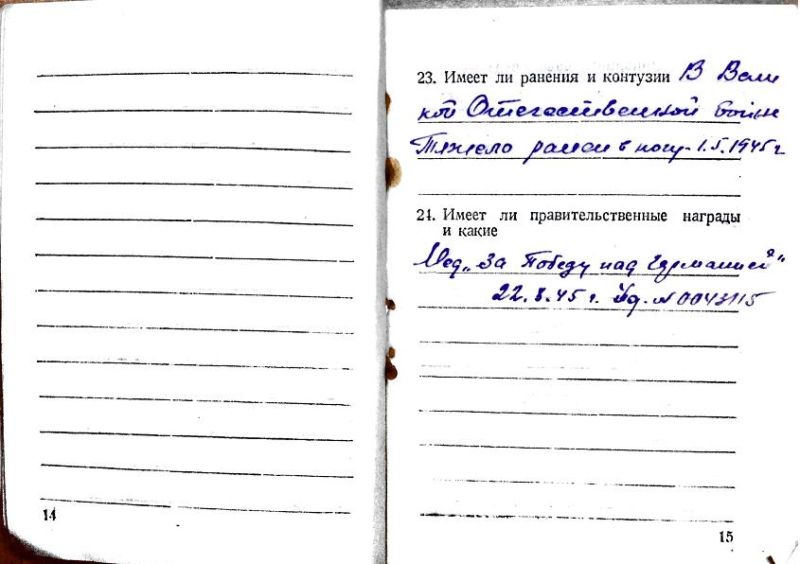 14
23. Имеет ли ранения и контузии В Вели
кой Отечественной войне
Тяжело ранен в ногу 1.5.1945 г
24. Имеет ли правительственные награды
и какие
Мед „За Победу над Германией"
22.8.45 г. Уд. № 0043115
15